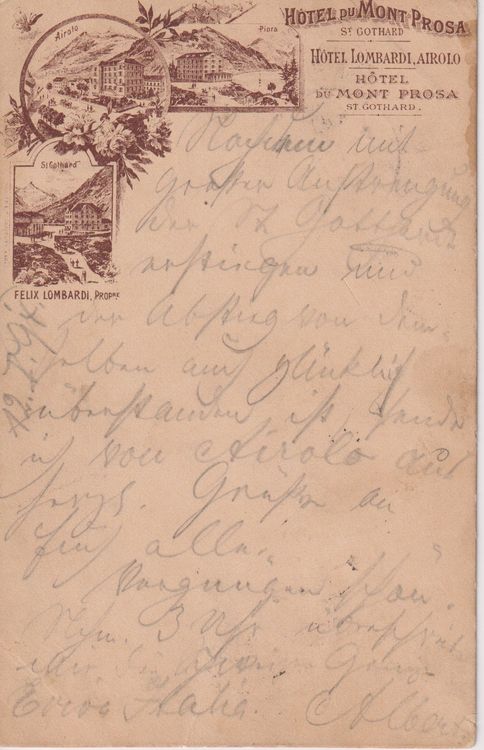 HÔTEL DU MONT PROSA
ST GOTHARD
HÔTEL LOMBARDI, AIROLO
HÔTEL
DU MONT PROSA
ST. GOTHARD.
Airolo
Piora
St Gothard
FELIX LOMBARDI, PROPRE
Nachdem mit
großer Anstrengung
der St. Gotthard
erstiegen und
der Abstieg von dem-
selben auch glücklich
überstanden ist, sende
ich von Airolo aus
herzl. Grüße an
Euch alle.
Vergnügen schön.
Nchm. 3 Uhr überschreiten
wir die Grenze
Evviva Italia. Albert